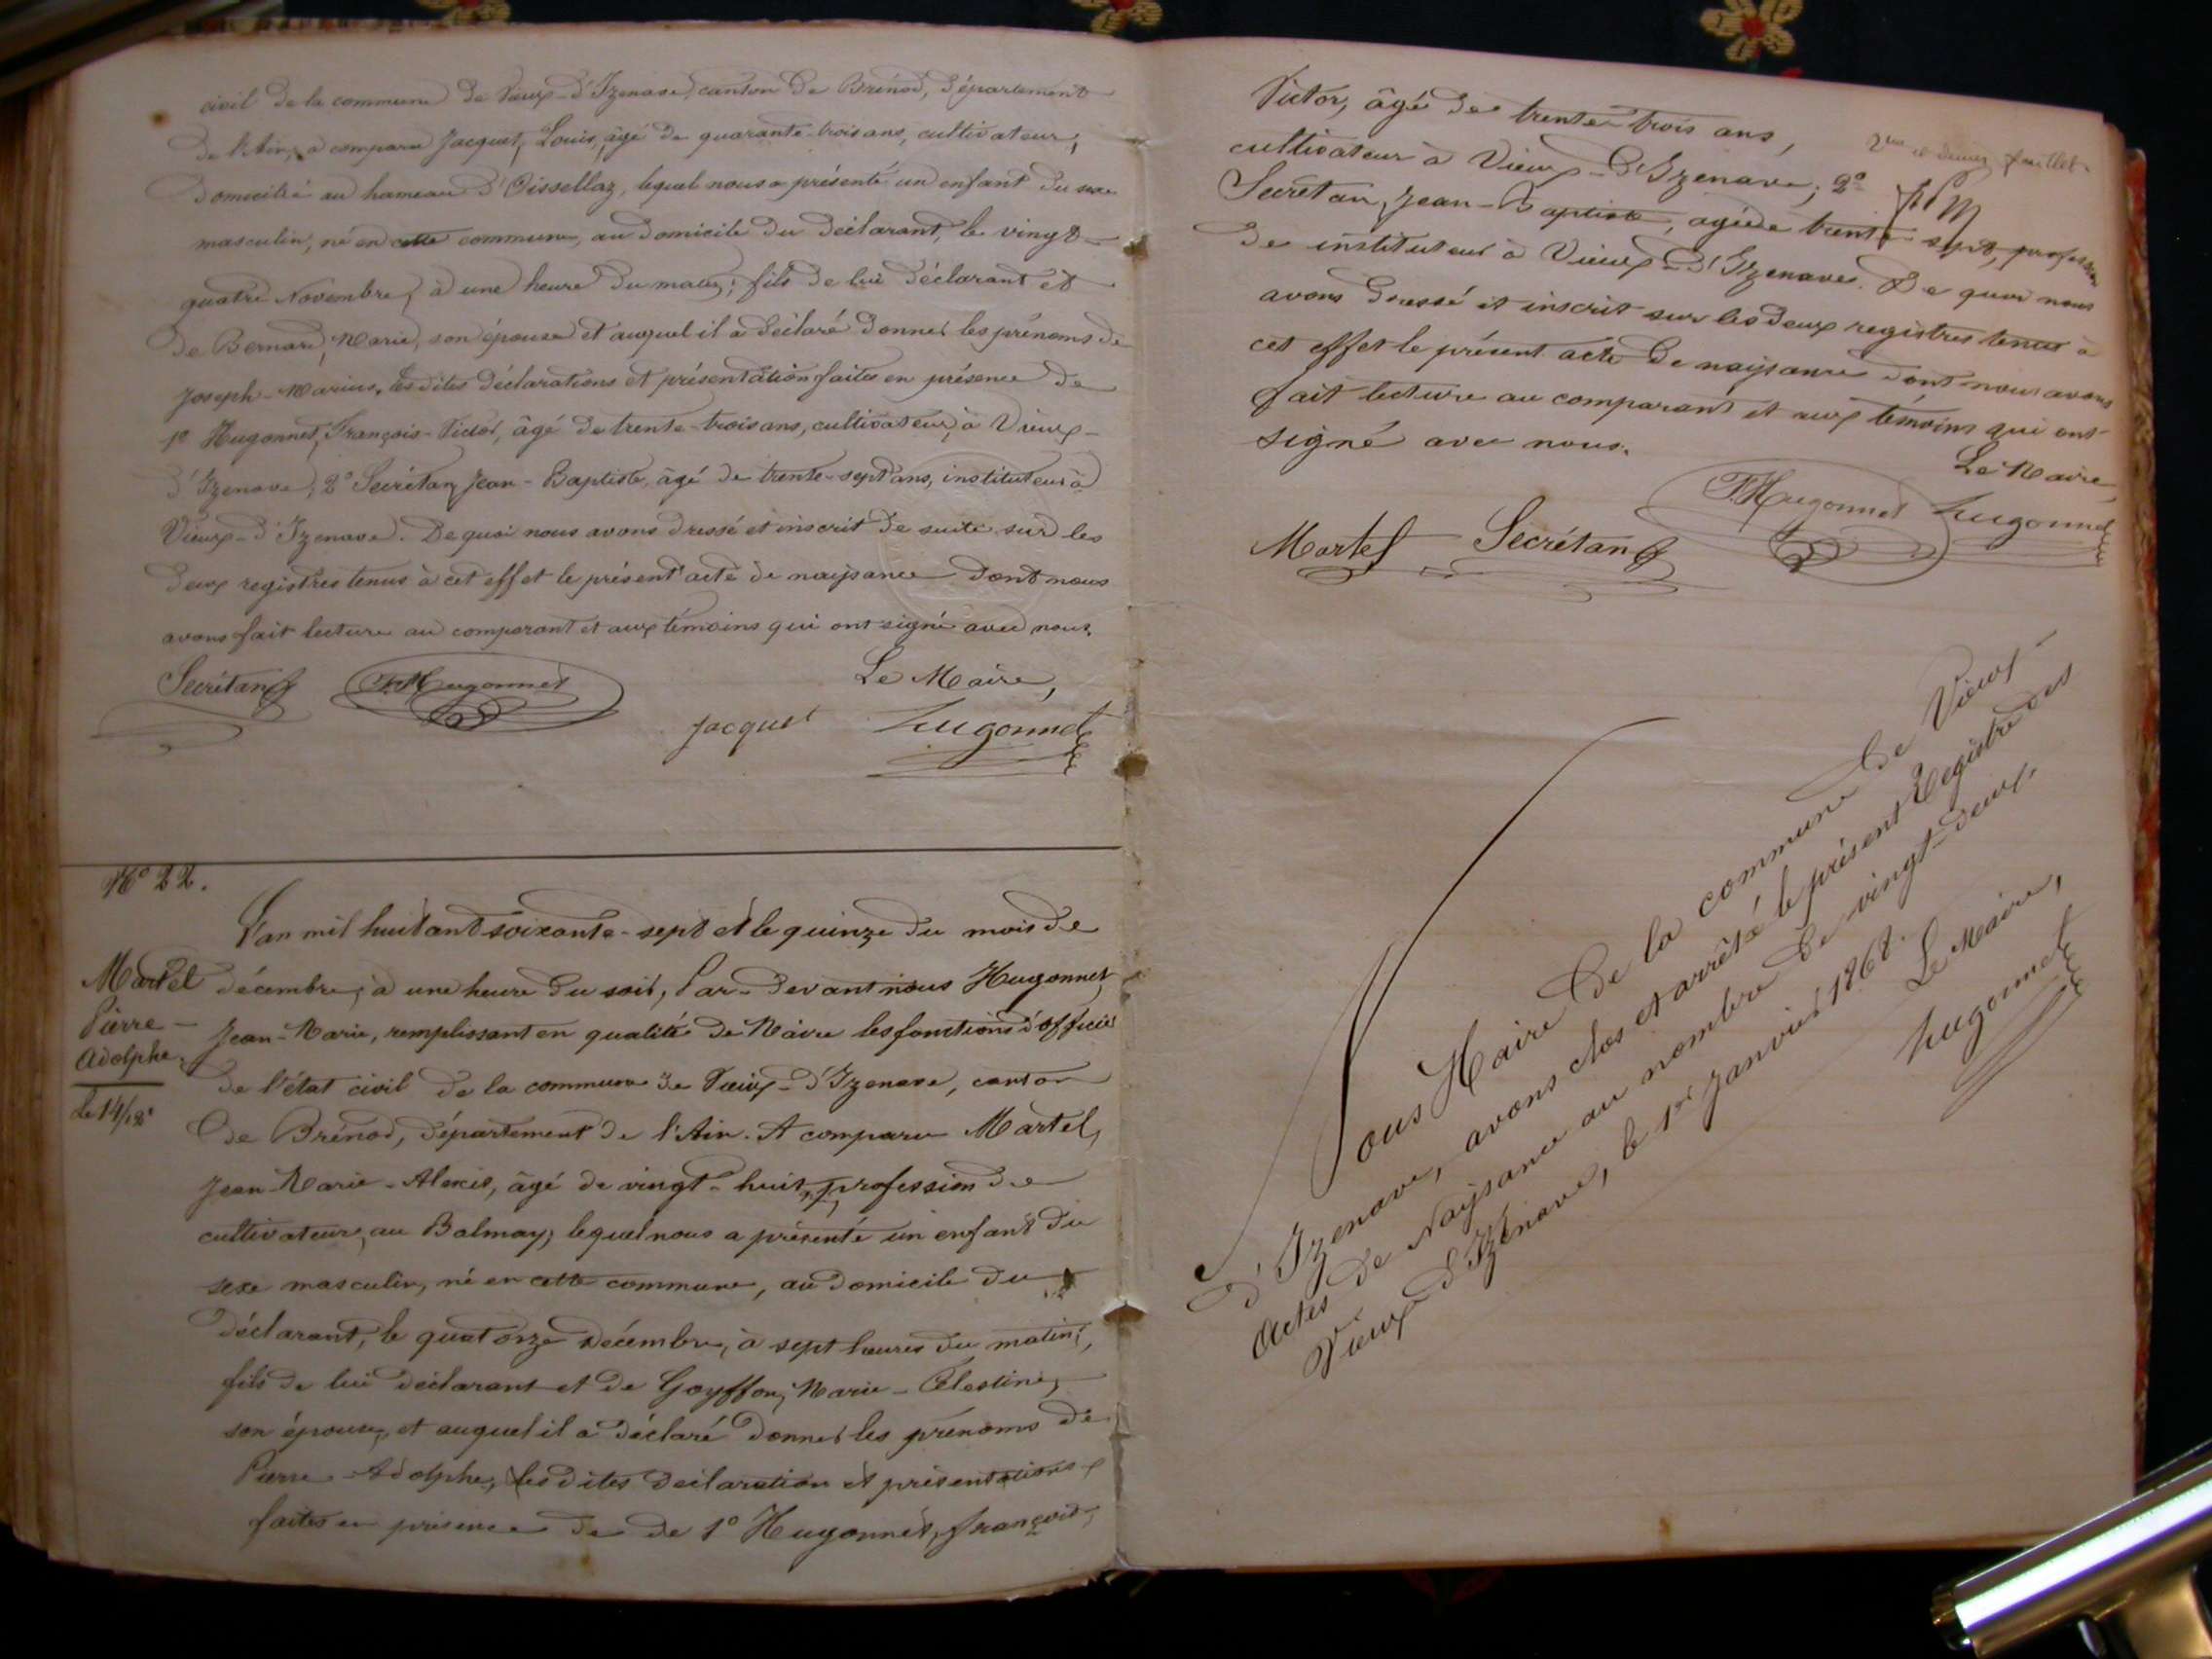 civil de la commune de Vieux-d'Izenave, canton de Brénod, département
de l'Ain, a comparu Jacquet, Louis, âgé de quarante-trois ans, cultivateur,
domicilié au hameau d'Oissellaz, lequel nous a présenté un enfant du sexe
masculin, né en cette commune, au domicile du déclarant, le vingt-
quatre Novembre, à une heure du matin; fils de lui déclarant et
de Bernard, Marie, son épouse et auquel il a déclaré donner les prénoms de
Joseph-Marius. Les dites déclarations et présentation faites en présence de
1º Hugonnet, François-Victor, âgé de trente-trois ans, cultivateur, à Vieux-
d'Izenave; 2º Secrétan, Jean-Baptiste, âgé de trente-sept ans, instituteur à
Vieux-d'Izenave. De quoi nous avons dressé et inscrit de suite sur les
deux registres tenus à cet effet le présent acte de naissance dont nous
avons fait lecture au comparant et aux témoins qui ont signé avec nous.
Le Maire,
Secrétan F. Hugonnet Jacquet Hugonnet
Nº 22.
L'an mil huit cent soixante-sept et le quinze du mois de
Martel
Pierre-
Adolphe.
le 14/12
décembre, à une heure du soir, Par-devant nous Hugonnet
Jean-Marie, remplissant en qualité de Maire les fonctions d'officier
de l'état civil de la commune de Vieux-d'Izenave, canton
de Brénod, département de l'Ain. A comparu Martel,
Jean-Marie-Alexis, âgé de vingt-huit, profession de
cultivateur, au Balmay, lequel nous a présenté un enfant du
sexe masculin, né en cette commune, au domicile du
déclarant, le quatorze décembre, à sept heures du matin,
fils de lui déclarant et de Goyffon, Marie-Célestine,
son épouse, et auquel il a déclaré donner les prénoms de
Pierre-Adolphe, les dites déclaration et présentations
faites en présence de de 1º Hugonnet, françois,
Victor, âgé de trente-trois ans,
2me et dernier feuillet.
cultivateur à Vieux-d'Izenave; 2º
Secrétan, Jean-Baptiste, agé de trente-sept, profession
de instituteur à Vieux-d'Izenave. De quoi nous
avons dressé et inscrit sur les deux registres tenus à
cet effet le présent acte de naissance dont nous avons
fait lecture au comparant et aux témoins qui ont
signé avec nous.
Le Maire,
Martel Secrétan F. Hugonnet Hugonnet
Nous Maire de la commune de Vieux-
d'Izenave, avons clos et arrêté le présent Registre des
Actes de Naissance au nombre de vingt-deux.
Vieux-d'Izenave, le 1er Janvier 1868.
Le Maire,
Hugonnet